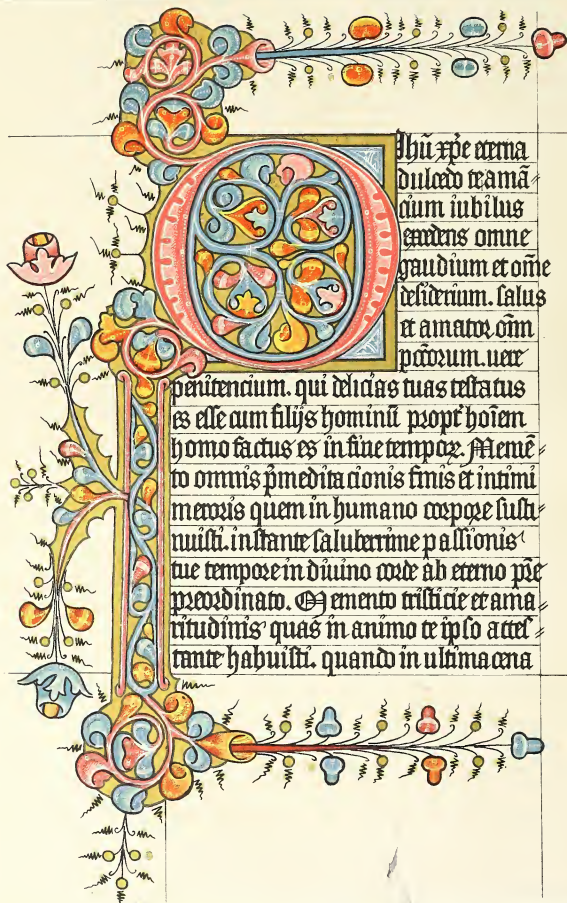 O Jhū xp̄e eterna
dulcedo te amā⸗
cium iubilus
excedens omne
gaudium et om̄e
desiderium. salus
et amator om̄
pctōrum. uere
penitencium. qui delicias tuas testatus
es esse cum filijs hominū propt' hoīem
homo factus es in fine tempoꝝ. Memē
to omnis p̄meditacionis finis et intimi
meroris quem in humano corpore susti⸗
nuisti. instante saluberrime passionis
tue tempore in diuino corde ab eterno p̄re
preordinato. Memento tristicie et ama⸗
ritudinis quas in animo te ipso attes⸗
tante habuisti. quando in ultima cena